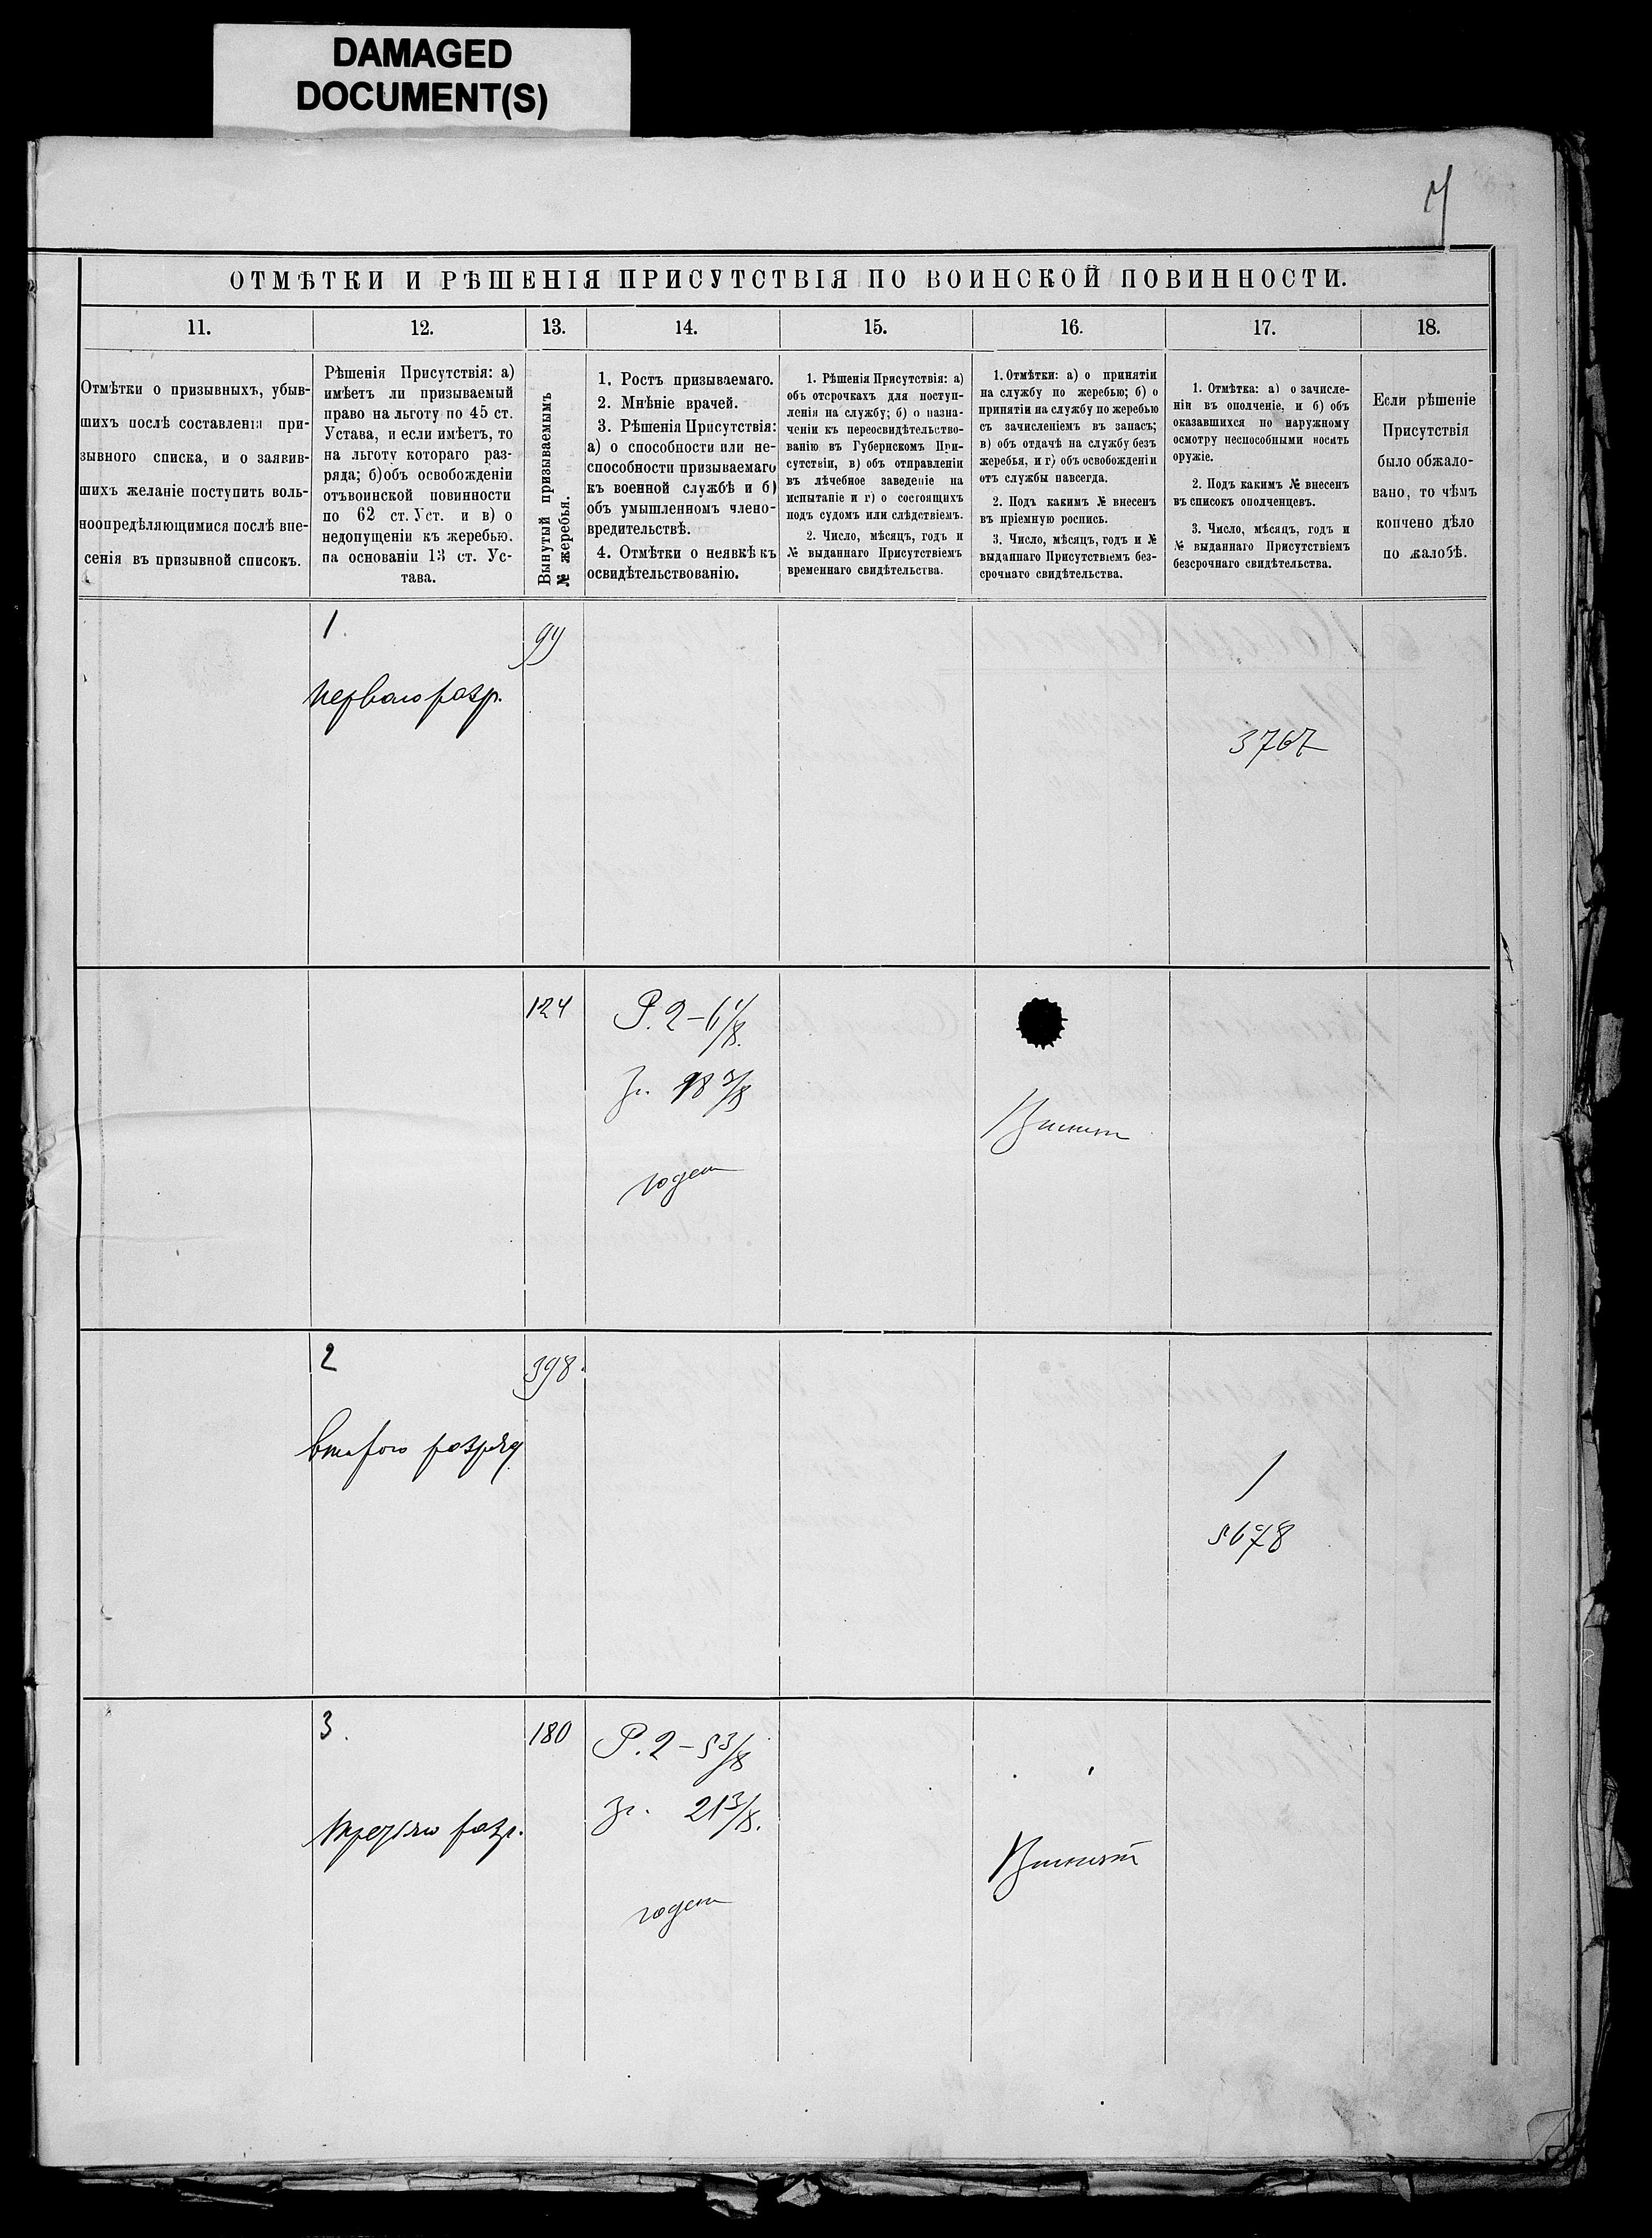 DAMAGED
DOCUMENT(S)
ОТМѢТКИ И РѢШЕНІЯ ПРИСУТСТВІЯ ПО ВОИНСКОЙ ПОВИННОСТИ.
11.
12.
13.
14.
15.
16.
17.
18.
Отмѣтки о призывныхъ, убыв-
шихъ послѣ составленія при-
зывного списка, и о заявив-
шихъ желаніе поступить воль-
ноопредѣляющимися послѣ вне-
сенія въ призывной списокъ.
Рѣшенія Присутствія: а)
имѣетъ ли призываемый
право на льготу по 45 ст.
Устава, и если имѣетъ, то
на льготу котораго раз-
ряда; б)объ освобожденіи
отъвоинской повинности
по 62 ст. Уст. и в) о
недопущеніи къ жеребью.
на основаніи 13 ст. Ус-
тава.
Вынутый призываемымъ
№ жеребья.
1. Ростъ призываемаго.
2. Мнѣніе врачей.
3. Рѣшенія Присутствія:
а) о способности или не-
способности призываемаго
къ военной службѣ и б)
объ умышленномъ члено-
вредительствѣ.
4. Отмѣтки о неявкѣ къ
освидѣтельствованію.
1. Рѣшенія Присутствія: а)
объ отсрочкахъ для поступ-
ленія на службу; б) о назна-
ченіи къ переосвидѣтельство-
ванію въ Губернскомъ При-
сутствіи, в) объ отправленіи
въ лѣчебное заведеніе на
испытаніе и г) о состоящихъ
подъ судомъ или слѣдствіемъ.
2. Число, мѣсяцъ, годъ и
№ выданнаго Присутствіемъ
временнаго свидѣтельства.
1. Отмѣтки: а) о принятіи
на службу по жеребью; б) о
принятіи на службу по жеребью
съ зачисленіемъ въ запасъ;
в) объ отдачѣ на службу безъ
жеребья, и г) объ освобожденіи
отъ службы навсегда.
2. Подъ какимъ № внесенъ
въ пріемную роспись.
3. Число, мѣсяцъ, годъ и №
выданнаго Присутствіемъ без-
срочнаго свидѣтельства.
1. Отмѣтка: а) о зачисле-
ніи въ ополченіе, и б) объ
оказавшихся по наружному
осмотру неспособными носить
оружіе.
2. Подъ какимъ № внесенъ
въ списокъ ополченцевъ.
3. Число, мѣсяцъ, годъ и
№ выданнаго Присутствіемъ
безсрочнаго свидѣтельства.
Если рѣшеніе
Присутствія
было обжало-
вано, то чѣмъ
кончено дѣло
по жалобѣ.
1.
перваго разр.
3767
124
Р. 2 – 6 1/8.
Зг. 18 3/8
годен
Принят
2
398.
втораго разряд
1
5678
3.
180
третьяго разр.
Р. 2 – 5 3/8
Зг. 21 3/8.
годен
Принят